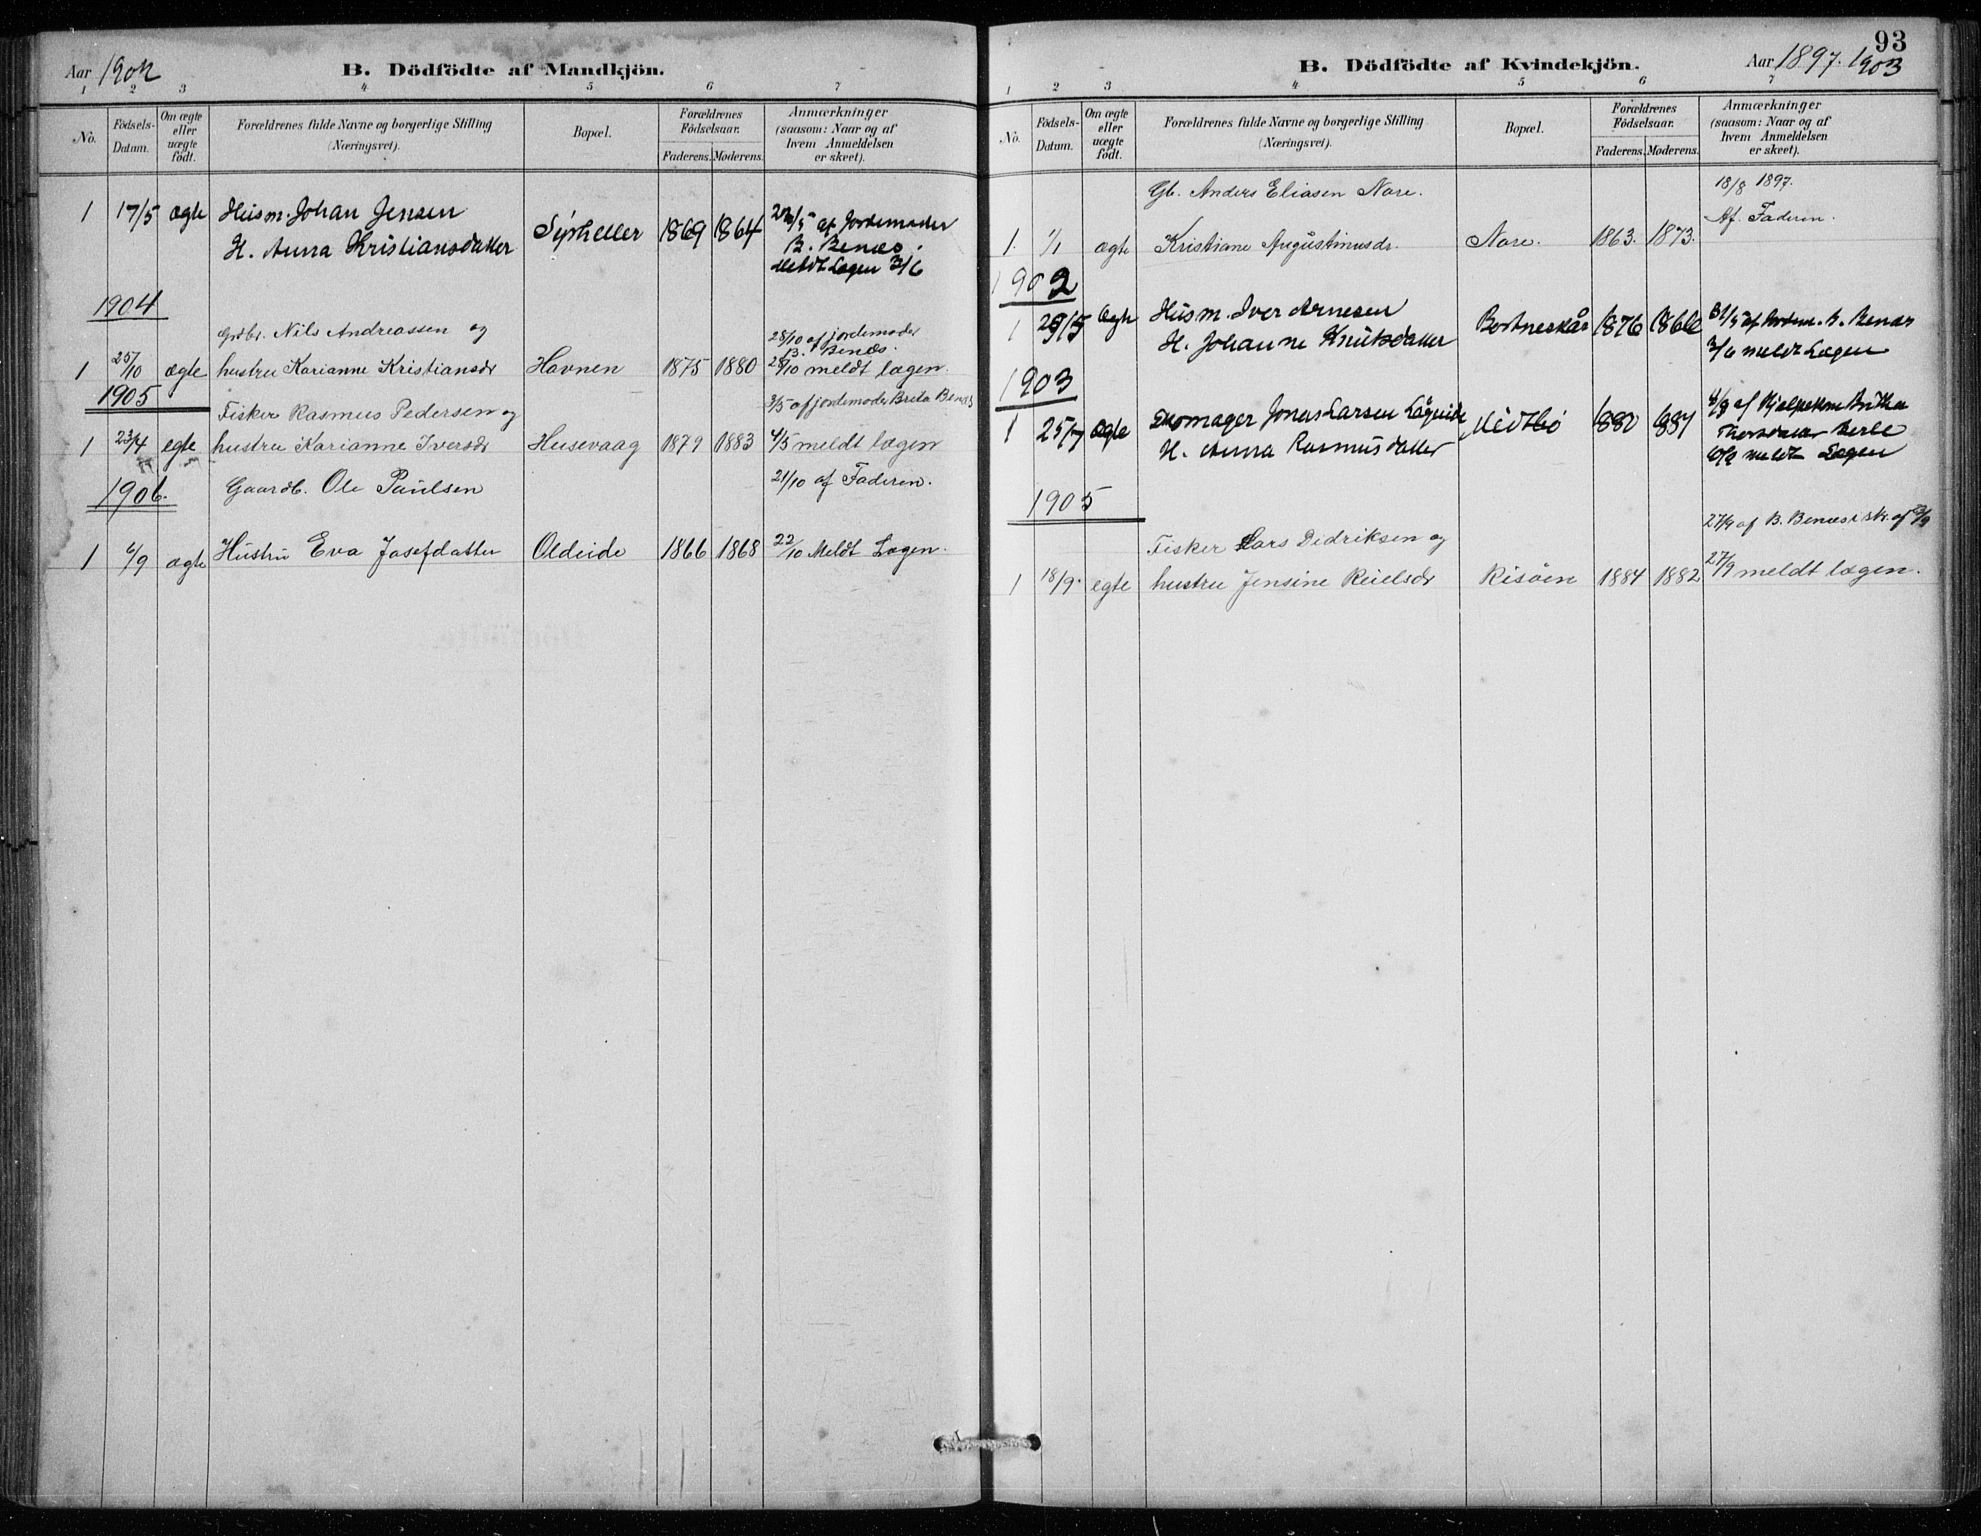 Aar 1902
B. Dödfödte af Mandkjön.
1 2 3 4 5 6 7
No.
Födsels-Datum.
Om ægte eller uægte födt.
Forældrenes fulde Navne og borgerlige Stilling (Næringsvei).
Bopæl.
Forældrenes Födselsaar.
Faderens. Moderens.
Anmærkninger (saasom: Naar og af hvem Anmeldelsen er skeet).
1 17/5 ægte Husm. Johan Jensen
H. Anna Kristiansdatter
1869 1864
af Jordemoder
B. Benæs.
Meldt Lægen 3/6
1904
Grdbr. Nils Andreassen og
28/10 af jordemoder
B. Benæs.
1 25/10 ægte hustru Karianne Kristiansdr Havnen 1875 1880
meldt lægen.
1905
Fisker Rasmus Pedersen og
3/5 af jordemoder Brita Benæs
1 23/4 egte hustru Karianne Iversdr Husevaag 1879 1883 4/5 meldt lægen
1906.
Gaardb. Ole Paulsen
21/10 af Faderen.
1 6/9 ægte Hustru Eva Josefdatter Oldeide 1866 1868 22/10 Meldt Lægen.
93
B. Dödfödte af Kvindekjön.
Aar 1897. 1903
1 2 3 4 5 6 7
No.
Födsels-Datum.
Om ægte eller uægte födt.
Forældrenes fulde Navne og borgerlige Stilling (Næringsvei).
Bopæl.
Forældrenes Födselsaar.
Faderens. Moderens.
Anmærkninger (saasom: Naar og af hvem Anmeldelsen er skeet).
Gb. Anders Eliasen Nore.
18/8 1897.
Af. Faderen.
1. 1/1 ægte Kristiane Augustinusdr. Nore. 1863. 1873.
1902
1 ægte Husm. Iver Arnesen
H. Johanne Knutsdatter
Bortneskår 1876
31/5 af Jordm. B. Benæs
3/6 meldt Lægen
1903
1 25/7 ægte Skomager Jonas Larsen
H. Anna Rasmusdatter
Midtbö 1880
af Hjelpekone
meldt Lægen
1905
27/9 af B. Benæs
Fisker Lars Didriksen og
1 18/9. egte hustru Jensine Reielsdr Risöen 1884 1882 27/9 meldt lægen.